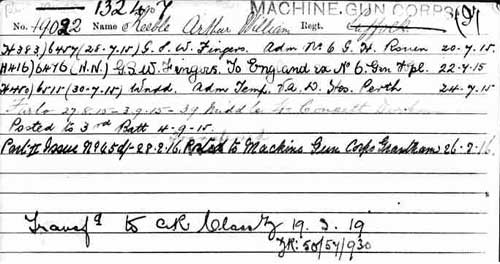 13240 MACHINE GUN CORPS
No. 19022 Name Keeble Arthur William Regt. Suffolk
H383)6457(25-7-15) G.S.W. Fingers. Adm No 6 G.H. Rouen 20-7-15.
H416)6476 (N.N.) G.S.W Fingers. To England ex No 6. Gen Hpl. 22-7-15
(30-7-15) Wndd. Adm Temp. Hos. Perth 24-7-15
Furlo 27-8-15 - 3-9-15 - 39 Middle St Consett Durham
Posted to 3rd Batt 4-9-15.
Part II Issue No 45 d/- 28-2-16. Posted to Machine Gun Corps Grantham 26-2-16.
Transfd to CR Class Z 19.3.19
ZR: 50/57/930